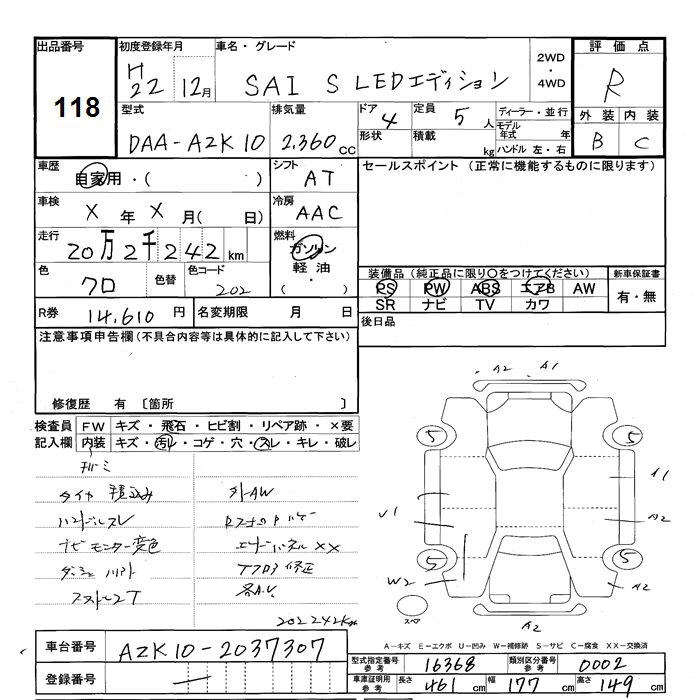 出品番号
118
初度登録年月
H
22 12月
車名・グレード
SAI S LEDエディション
2WD
・
4WD
評価点
R
外装 内装
B C
型式
DAA-AZK10
排気量
2,360 cc
ドア
4
形状
定員
5 人
積載
kg
ディーラー・並行
モデル
年式 年
ハンドル 左・右
車歴
自家用・( )
シフト
AT
セールスポイント (正常に機能するものに限ります)
車検
X 年 X 月( 日)
冷房
AAC
走行
20万2千242 km
燃料
ガソリン
軽油
( ・ )
色
クロ
色替
色コード
202
装備品 (純正品に限り〇をつけてください)
PS PW ABS エアB AW
SR ナビ TV カワ
新車保証書
有・無
R券 14,610 円
名変期限 月 日
後日品
注意事項申告欄 (不具合内容等は具体的に記入して下さい)
修復歴 有 〔箇所 〕
検査員
記入欄
FW キズ・飛石・ヒビ割・リペア跡・×要
内装 キズ・汚レ・コゲ・穴・スレ・キレ・破レ
タイヤ 積込み
外AW
ハンドルスレ
ナビモニター変色
エンドパネル××
修正
202242Km
A2 A1
5 5
A1
U1
A2
5 5
W2
A2
スペア
A2
A-キズ E-エクボ U-凹み W-補修跡 S-サビ C-腐食 XX-交換済
車台番号 AZK10-2037307
登録番号 —
型式指定番号
参考
16368
類別区分番号
参考
0002
車庫証明用
参考
長さ 461 cm 幅 177 cm 高さ 149 cm